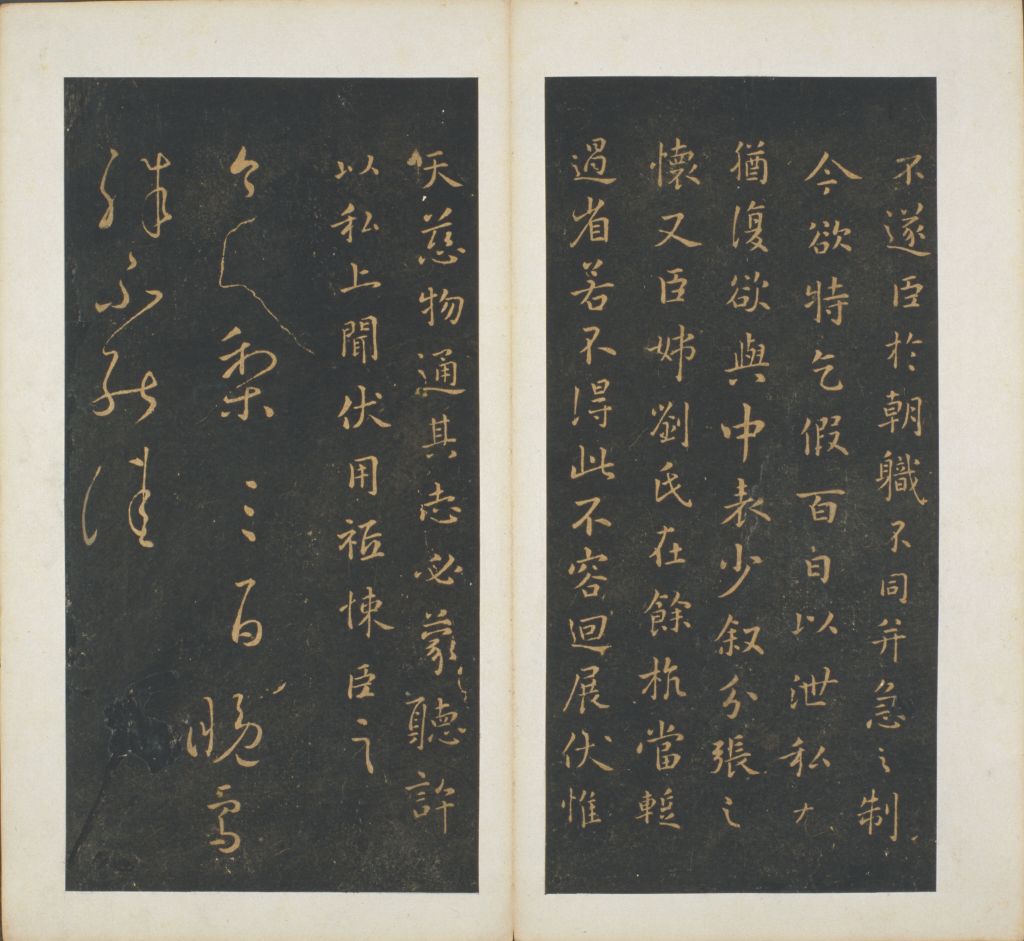 不遂臣於朝職不同并急之制
今欲特乞假百日以泄私尤
猶復欲與中表少叙分張之
懷又臣姊劉氏在餘杭當暫
過省若不得此不容迴展伏惟
天慈物通其志必蒙聽許
以私上聞伏用祗悚臣之
今送梨三百晚雪
殊不能佳